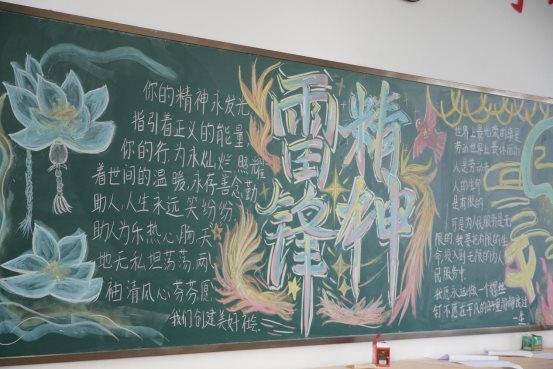 你的精神永发光
指引着正义的能量
你的行为永灿烂 照耀
着世间的温暖,永存善念勤
助人,人生永远笑纷纷
助人为乐热心肠,天
地无私坦荡荡,两
袖清风心芬芳愿
我们创建美好社会.
雷锋
精神
世界上最
劳动世界上最
人是劳动
人的生命
是有限的
可是为人民服务是无
限的 我要把有限的生
命 投入到无限的为人
民服务中.
我愿永远做一个螺丝
钉
一生